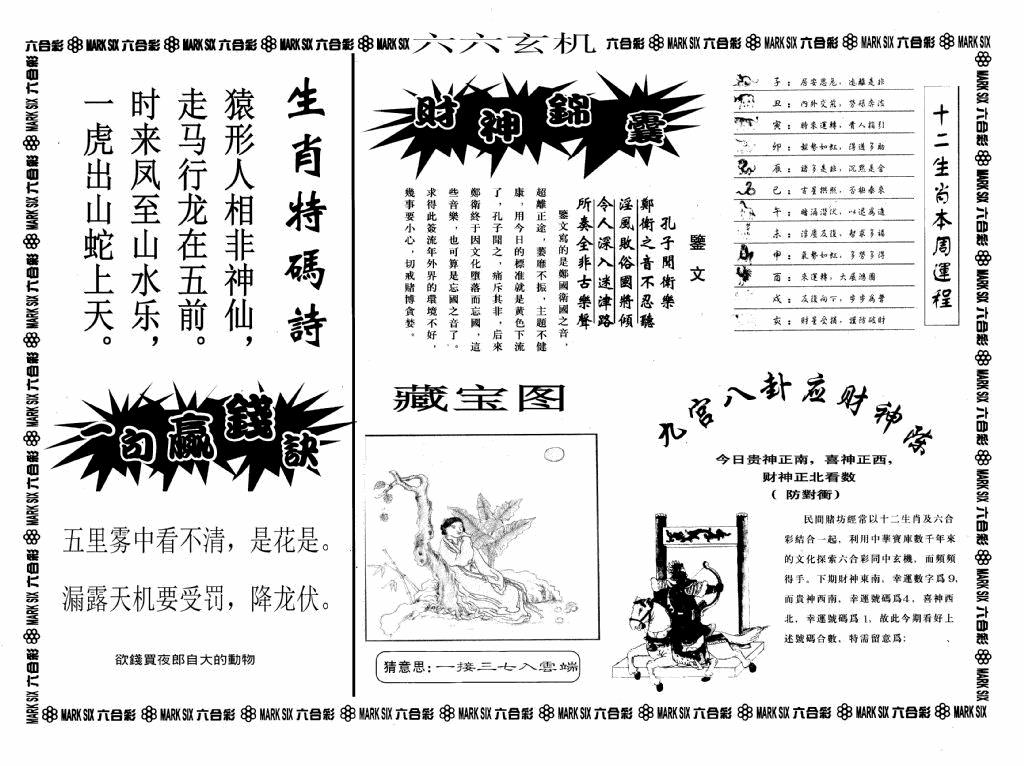 六合彩 MARK SIX 六合彩 MARK SIX 六合彩 MARK SIX 六合彩 MARK SIX 六六玄机 六合彩 MARK SIX 六合彩 MARK SIX 六合彩 MARK SIX 六合彩 MARK SIX
生肖特碼詩
猿形人相非神仙，
走马行龙在五前。
时来凤至山水乐，
一虎出山蛇上天。
一句贏錢訣
五里雾中看不清，是花是。
漏露天机要受罚，降龙伏。
欲錢買夜郎自大的動物
財神錦囊
鑒文
孔子聞衛樂
鄭衛之音不忍聽
淫風敗俗國將傾
令人深入迷津路
所奏全非古樂聲
鑒文寫的是鄭國衛國之音，
超離正途，萎靡不振，主題不健
康，用今日的標准就是黄色下流
了，孔子聞之，痛斥其非，后來
鄭衛終于因文化墮落而忘國，這
些音樂，也可算是忘國之音了。
求得此簽流年外界的環境不好，
幾事要小心，切戒賭博貪婪。
十二生肖本周運程
子：居安思危，遠離是非
丑：內外交荒，勞碌奔波
寅：時來運轉，貴人指引
卯：
辰：諸多是非，沉默是金
巳：吉星拱照，否極泰來
午：暗涌潜伏，以退為進
未：
申：氣勢如虹，多勞多得
酉：來運轉，大展鴻圖
戌：
亥：
藏宝图
猜意思：一接三七入雲端
九宫八卦应财神陈
今日贵神正南，喜神正西，
财神正北看数
（防對衝）
民間賭坊經常以十二生肖及六合
彩結合一起，利用中華寶庫數千年來
的文化探索六合彩同中玄機，而頻頻
得手。下期財神東南，幸運數字爲9，
而貴神西南，幸運號碼爲4，喜神西
北，幸運號碼爲1，故此今期看好上
述號碼合數，特需留意爲：、
MARK SIX 六合彩 MARK SIX 六合彩 MARK SIX 六合彩 MARK SIX 六合彩 MARK SIX 六合彩 MARK SIX 六合彩 MARK SIX 六合彩 MARK SIX 六合彩 MARK SIX 六合彩 MARK SIX